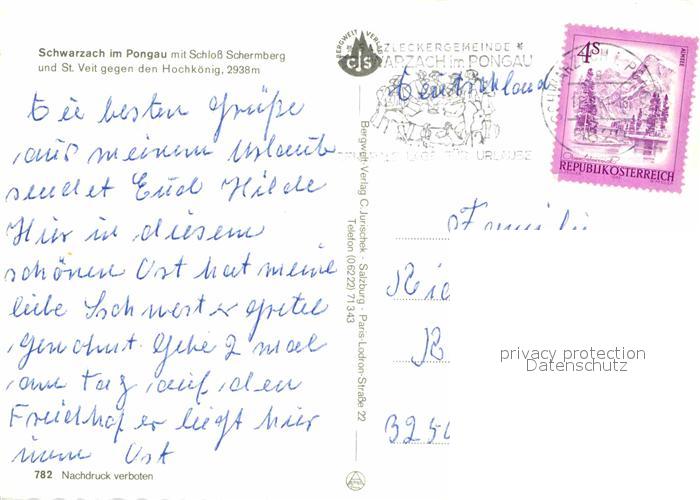 Schwarzach im Pongau mit Schloß Schernberg
und St. Veit gegen den Hochkönig, 2938m
Die besten Grüße
aus meinem Urlaub
sendet Euch Hilde
Hier in diesem
schönen Ort hat meine
liebe Schwester Gretel
gewohnt. Gehe 2 mal
am Tag auf den
Friedhof er liegt hier
im Ort
782 Nachdruck verboten
BERGWELT VERLAG
cjs
Bergwelt-Verlag C. Jurischek - Salzburg - Paris-Lodron-Straße 22
Telefon (06222) 71343
SALZLECKERGEMEINDE
SCHWARZACH im PONGAU
URLAUBE
Deutschland
4S
REPUBLIK ÖSTERREICH
Famili
privacy protection
Datenschutz